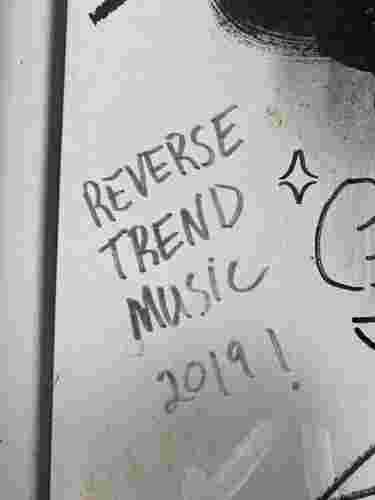 REVERSE
TREND
MUSIC
2019!